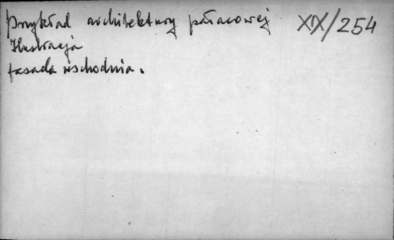 przykład architektury pałacowej XIX/254
Ilustracja
fasada wschodnia.